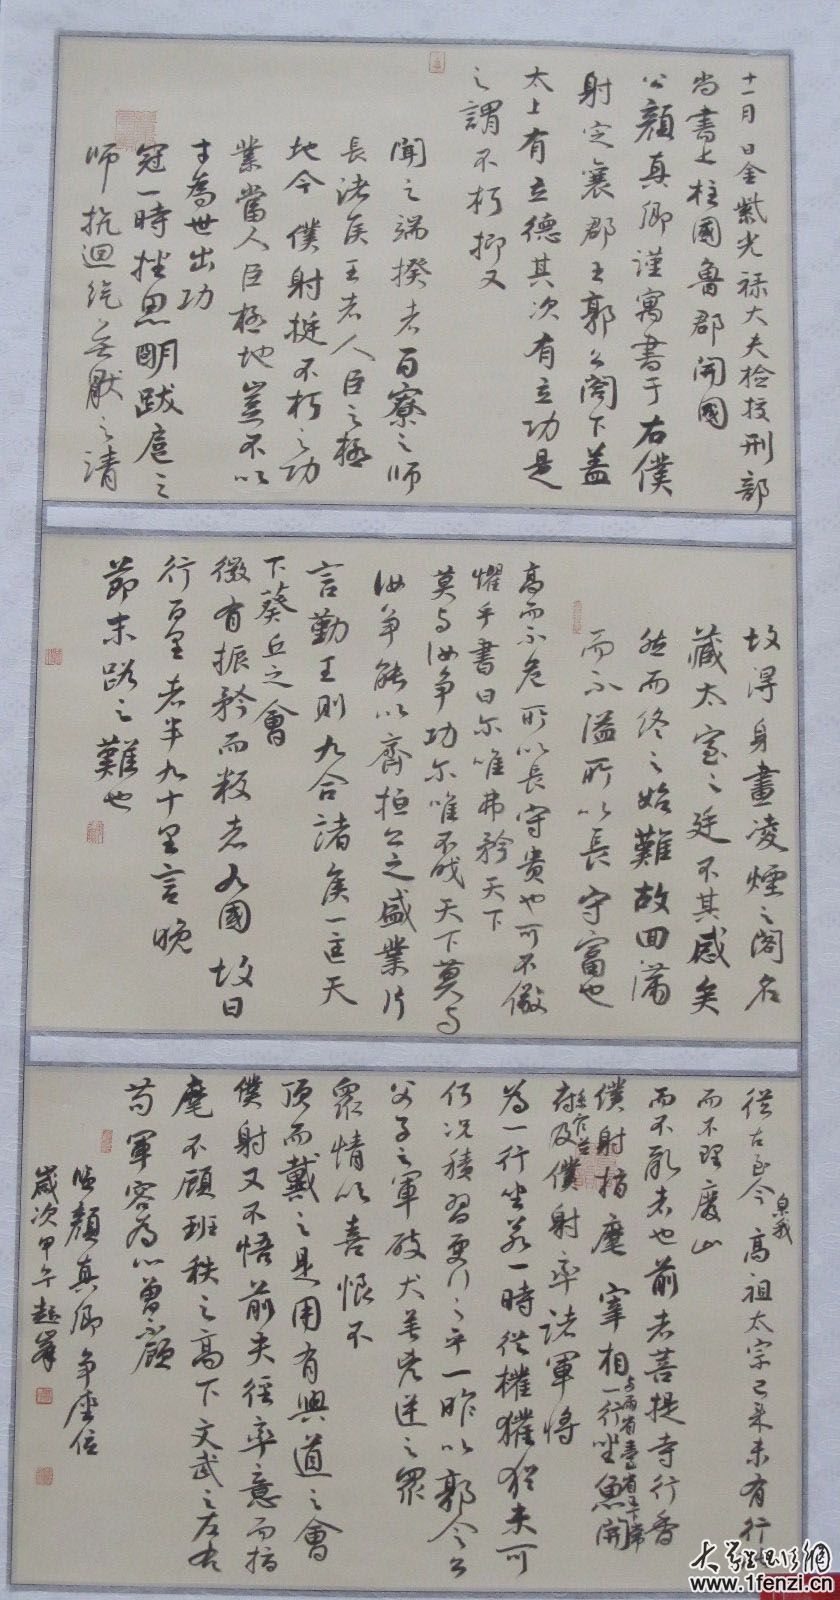 十一月 日金紫光禄大夫检校刑部
尚書上柱國魯郡開國
公顏真卿謹寓書于右僕
射定襄郡王郭公閣下盖
太上有立德其次有立功是
之謂不朽抑又
聞之端揆者百寮之师
長诸侯王者人臣之極
地今僕射挺不朽之功
業當人臣極地豈不以
才為世出功
冠一時挫思明跋扈之
师抗迴纥無厭之请
故得身畫凌煙之阁名
藏太室之廷不其感矣
然而终之始難故曰满
而不溢所以長守富也
高而不危所以長守贵也可不儆
懼乎書曰尔唯弗矜天下
莫与汝争功尔唯不伐天下莫与
汝争能以齊桓公之盛業片
言勤王则九合諸侯一匡天
下葵丘之會
微有振矜而叛者九國故曰
行百里者半九十里言晚
節末路之難也
從古至今 高祖太宗已来未有行此
而不理廢山
而不敢者也前者菩提寺行香
僕射指麾 宰相 一行坐魚開
府及僕射率诸軍将
為一行坐若一時從權猶未可
何况積習更行之乎一昨以郭令公
父子之軍破犬羊凶逆之眾
眾情以喜恨不
顶而戴之是用有興道之會
僕射又不悟前失徑率意而指
麾不顾班秩之高下文武之左右
苟軍容為心曾不顾
临顏真卿争座位
歲次甲午
大學書法網
www.1fenzi.cn